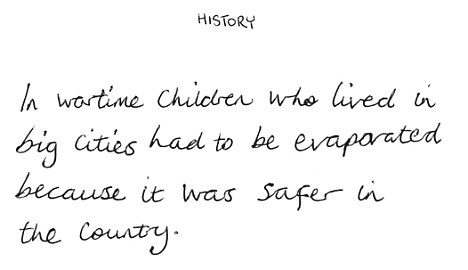 HISTORY
In wartime Children who lived in
big cities had to be evaporated
because it was safer in
the Country.